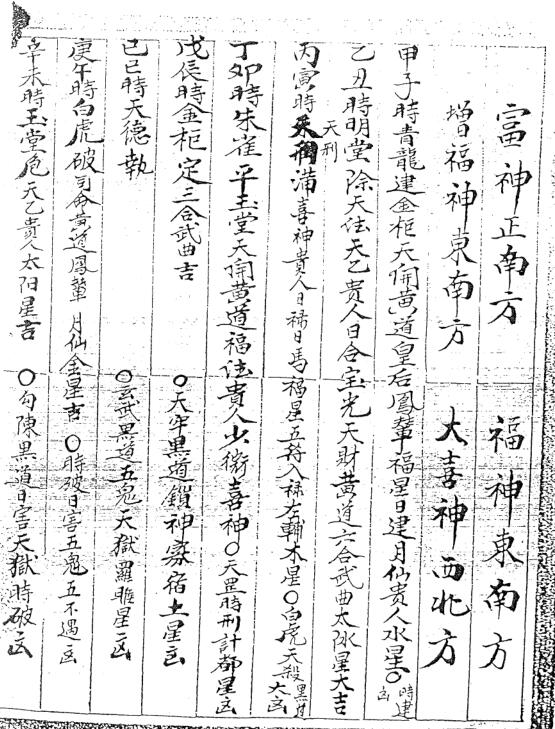 富神正南方　福神東南方
增福神東南方　大喜神西北方
甲子時青龍建金柜天開黃道皇后鳳輦福星日建月仙貴人水星〇時建凶
乙丑時明堂除天法天乙貴人日合宝光天財黃道六合武曲太阴星大吉
丙寅時天刑滿喜神貴人日祿日馬福星五符入祿左輔木星〇白虎天殺黑道大凶
丁卯時朱雀平玉堂天開黃道福法貴人少微喜神〇天罡時刑計都星凶
戊辰時金柜定三合武曲吉　〇天牢黑道鎖神寡宿土星凶
己巳時天德執　〇玄武黑道五鬼天獄羅睺星凶
庚午時白虎破司命黃道鳳輦月仙金星吉〇時破日害五鬼五不遇凶
辛未時玉堂危天乙貴人太阳星吉　〇勾陳黑道日害天獄時破凶